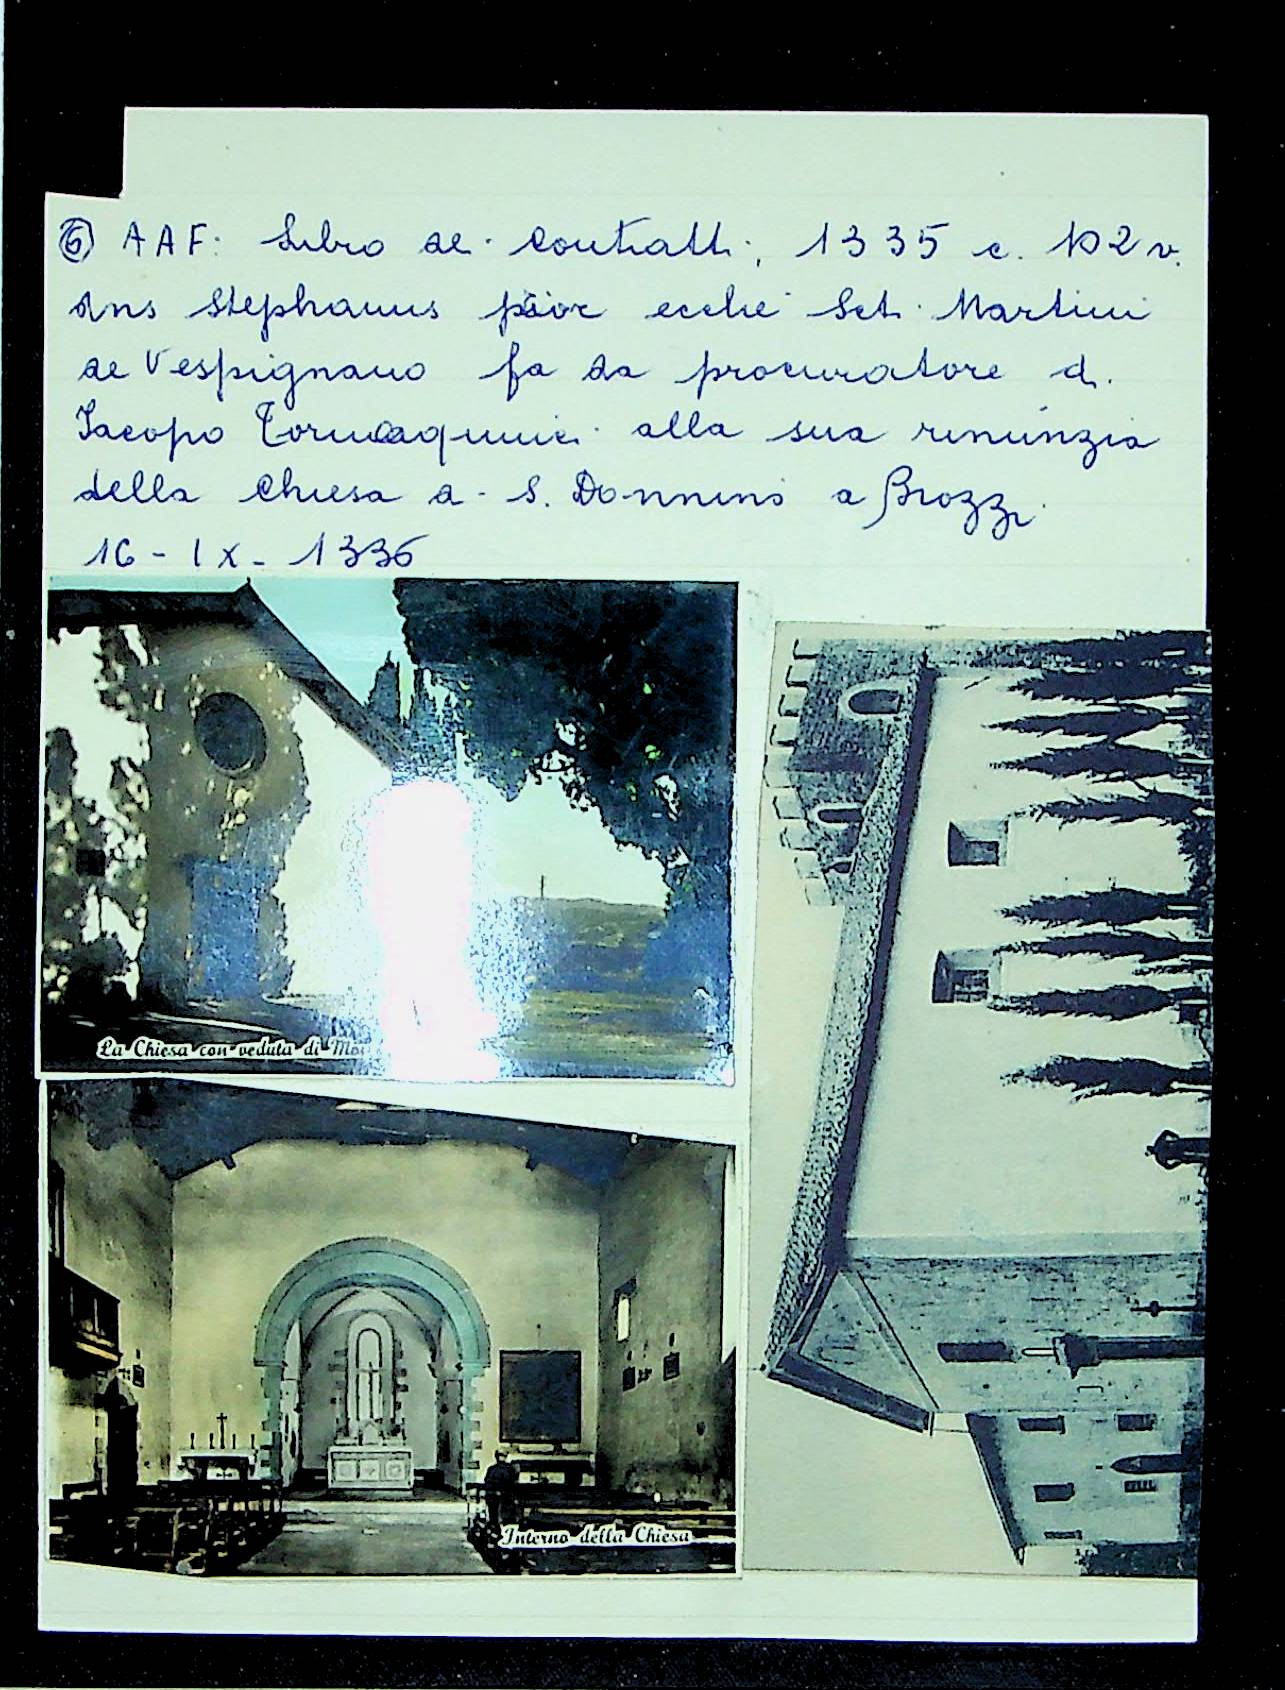 ⑥ AAF: Libro de' contratti, 1335 c. 102 v.
Dns Stephanus prior ecclie Scti Martini
de Vespignano fa da procuratore di
Iacopo Tornaquinci alla sua rinunzia
della Chiesa di S. Donnino a Brozzi
16 - IX - 1336
La Chiesa con veduta di
Interno della Chiesa